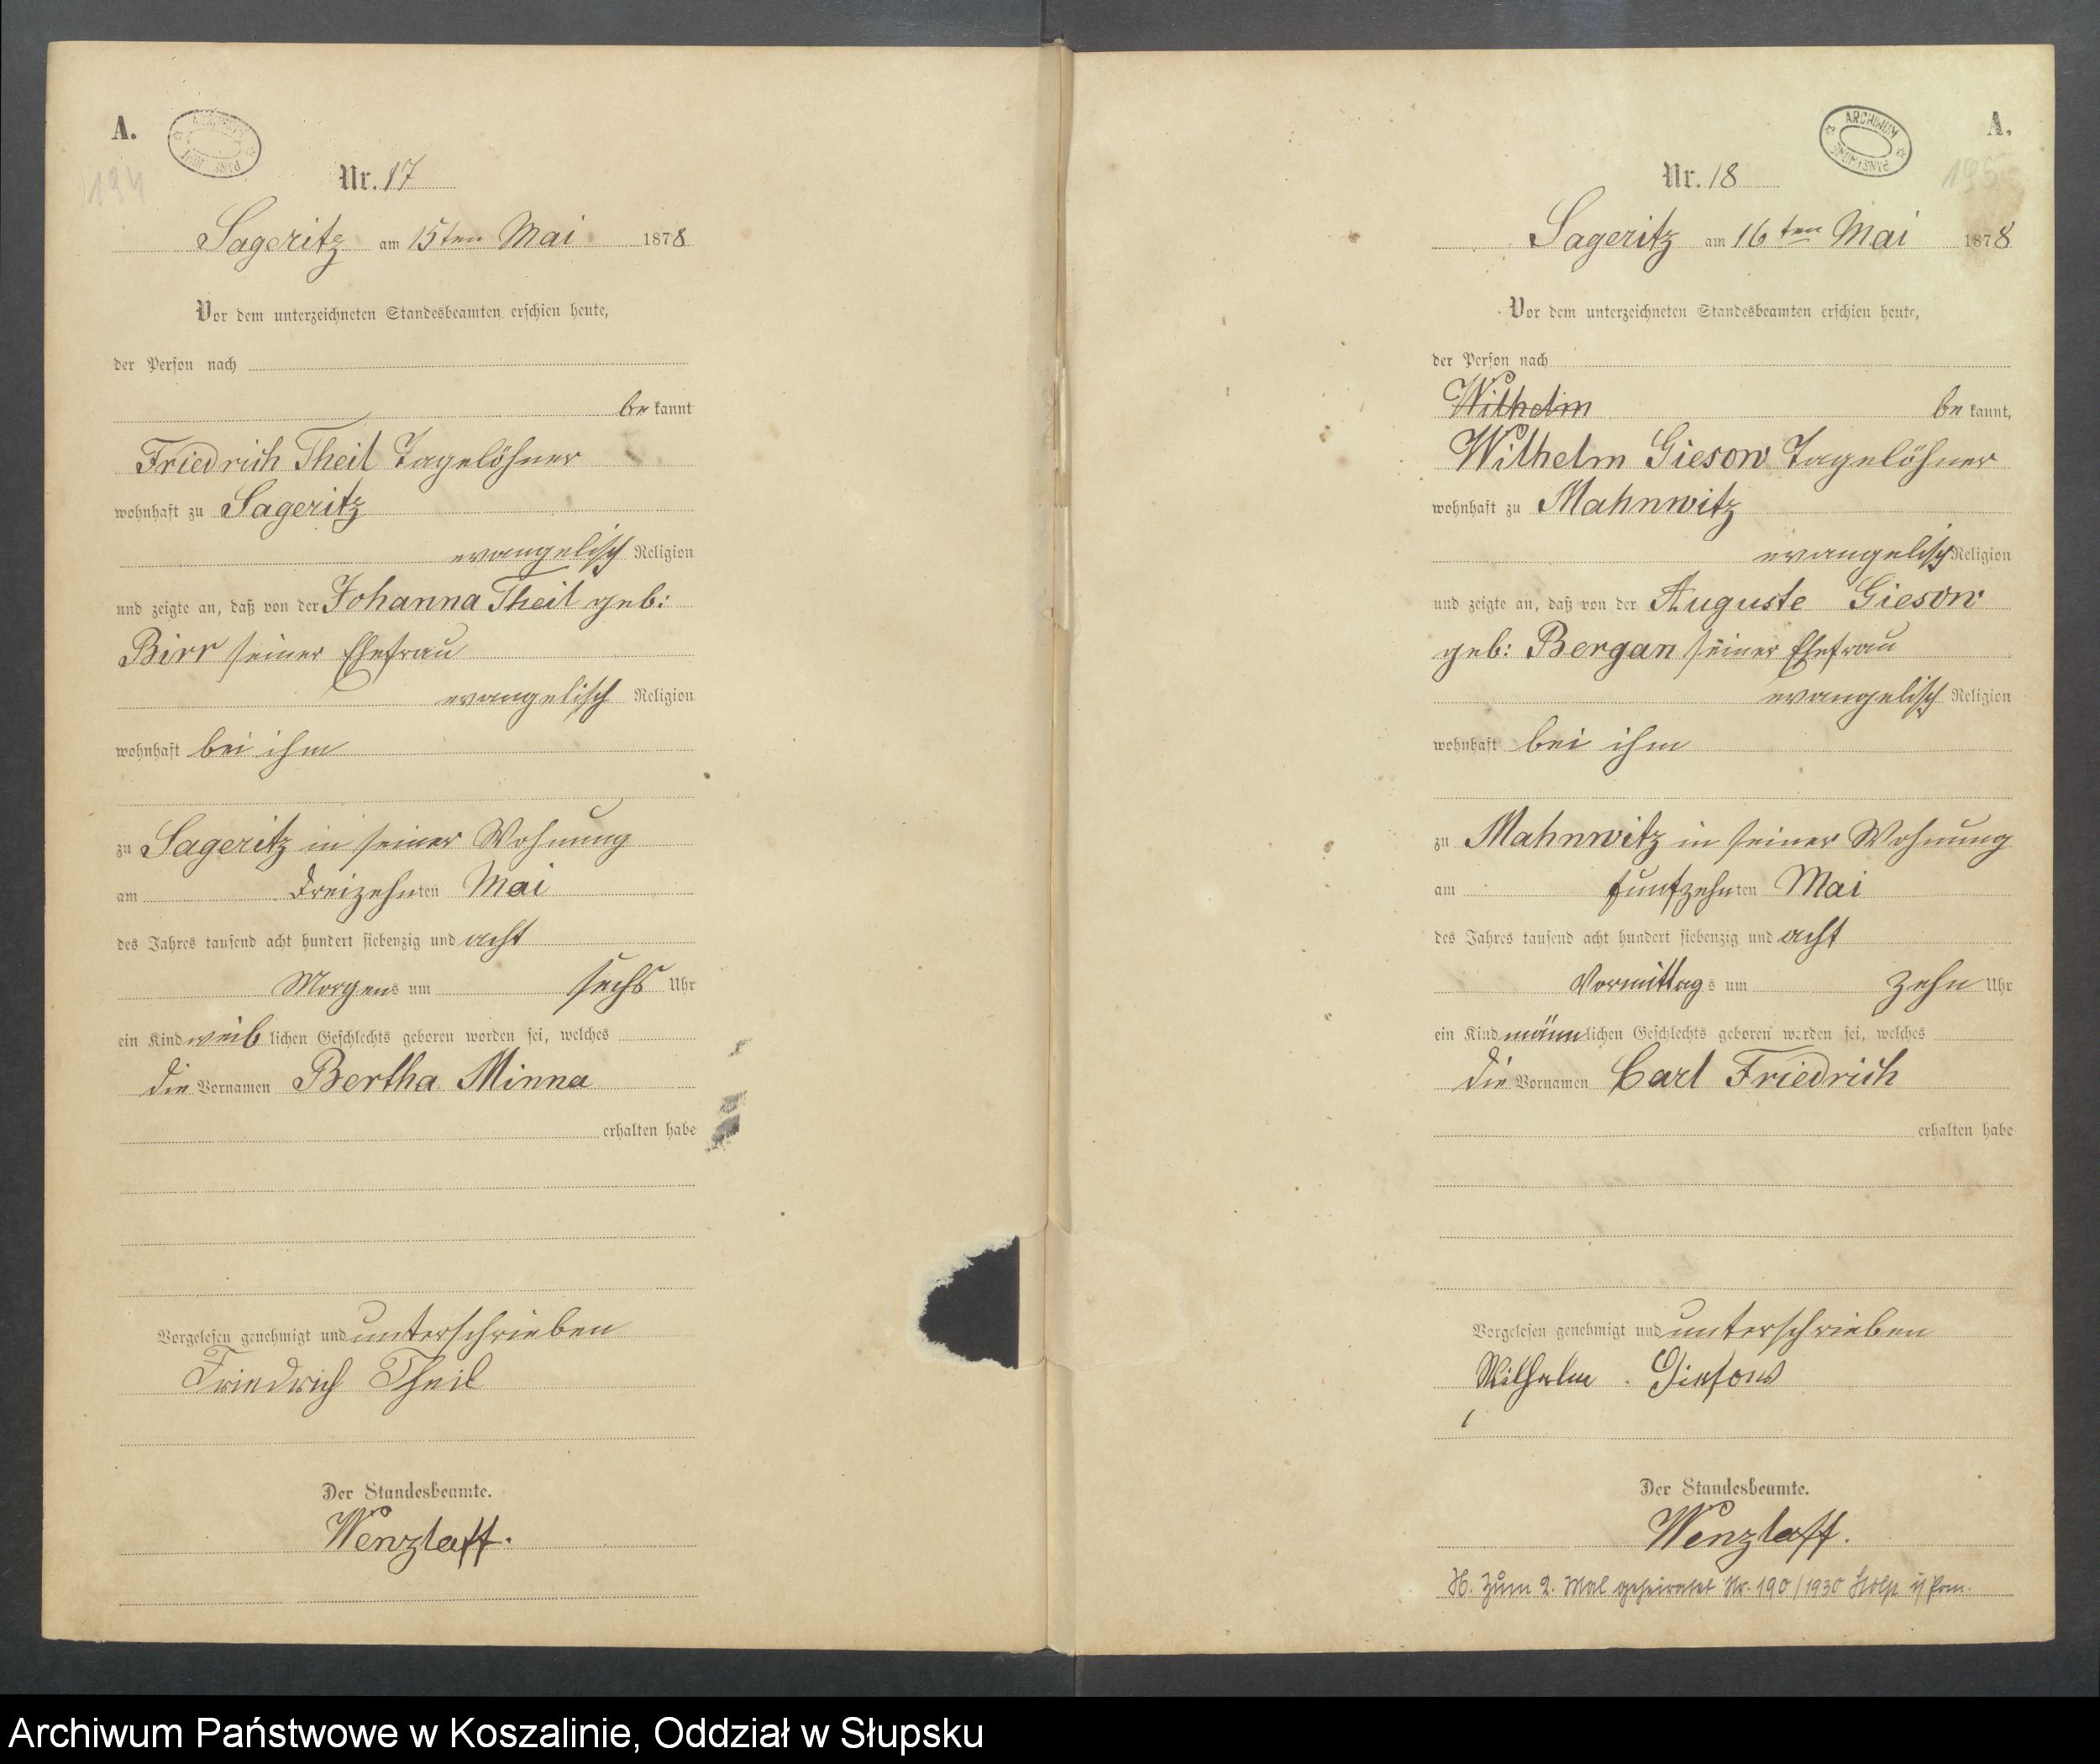 A.
ARCHIWUM PAŃSTWOWE
194
Nr. 17
Sageritz am 15ten Mai 1878
Vor dem unterzeichneten Standesbeamten erschien heute,
der Person nach
be kannt
Friedrich Theil Tagelöhner
wohnhaft zu Sageritz
evangelisch Religion
und zeigte an, daß von der Johanna Theil geb:
Birr seiner Ehefrau
evangelisch Religion
wohnhaft bei ihm
zu Sageritz in seiner Wohnung
am dreizehnten Mai
des Jahres tausend acht hundert siebenzig und acht
Morgens um sechs Uhr
ein Kind weiblichen Geschlechts geboren worden sei, welches
die Vornamen Bertha Minna
erhalten habe
Vorgelesen genehmigt und unterschrieben
Friedrich Theil
Der Standesbeamte.
Wenzlaff.
A.
ARCHIWUM PAŃSTWOWE
195
Nr. 18
Sageritz am 16ten Mai 1878
Vor dem unterzeichneten Standesbeamten erschien heute,
der Person nach
Wilhelm be kannt,
Wilhelm Giesow Tagelöhner
wohnhaft zu Mahnwitz
evangelisch Religion
und zeigte an, daß von der Auguste Giesow
geb: Bergan seiner Ehefrau
evangelisch Religion
wohnhaft bei ihm
zu Mahnwitz in seiner Wohnung
am fünfzehnten Mai
des Jahres tausend acht hundert siebenzig und acht
Vormittags um zehn Uhr
ein Kind männlichen Geschlechts geboren worden sei, welches
die Vornamen Carl Friedrich
erhalten habe
Vorgelesen genehmigt und unterschrieben
Wilhelm Giesow
Der Standesbeamte.
Wenzlaff.
H. Zum 2. Mal geheiratet Nr. 190/1930 Stolp i/Pom.
Archiwum Państwowe w Koszalinie, Oddział w Słupsku